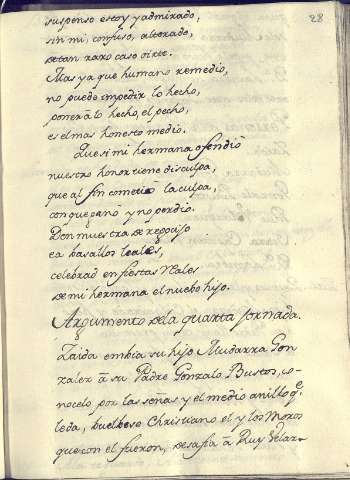 28
suspenso estoy y admirado,
sin mi, confuso, alterado,
de tan raro caso oirte.
Mas ya que humano remedio,
no puede impedir lo hecho,
poner a lo hecho, el pecho,
es el mas honesto medio.
Que si mi hermana ofendio
nuestro honor tiene disculpa,
que al fin cometio la culpa,
con que ganò y no perdio.
Den muestra de regozijo
ea basallos leales,
celebrad en fiestas Reales
de mi hermana el nuebo hijo.
Argumento de la quarta Jornada.
Zaida embia su hijo Mudarra Gon
zalez à su Padre Gonzalo Bustos, co-
nocelo por las señas y el medio anillo qe
le da, buelbese Christiano el y los Moros
que con el fueron, desafia à Ruy Velaz-